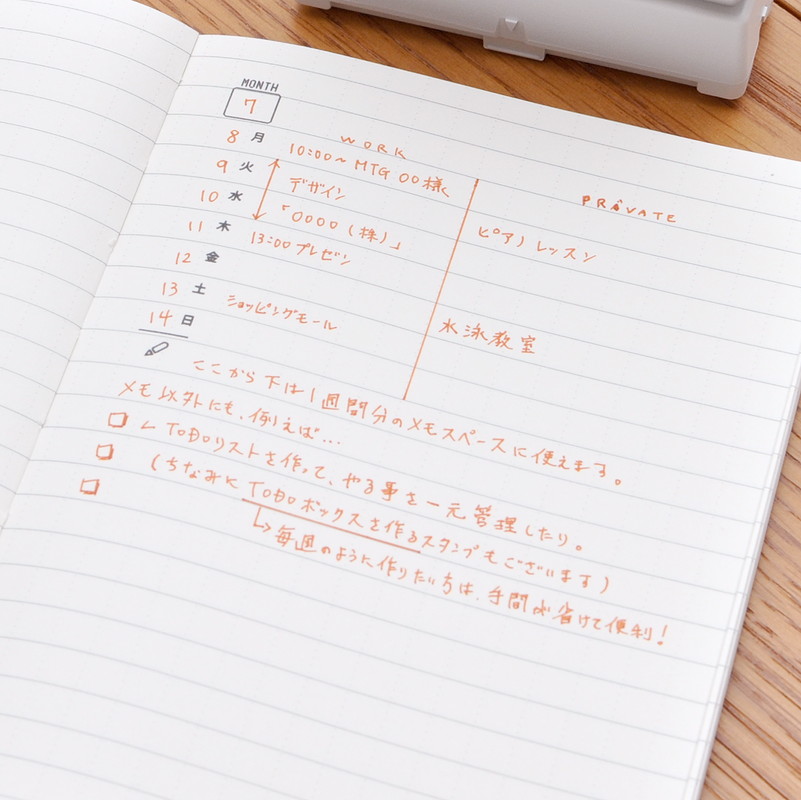 MONTH
7
WORK
PRIVATE
8 月 10:00〜 MTG 〇〇様
9 火 デザイン
10 水 「〇〇〇〇(株)」 ピアノレッスン
11 木 13:00 プレゼン
12 金
13 土 ショッピングモール 水泳教室
14 日
ここから下は1週間分のメモスペースに使えます。
メモ以外にも、例えば…
□ ← TODOリストを作って、やる事を一元管理したり。
□ (ちなみに TODOボックスを作るスタンプもございます)
□ ↳ 毎週のように作りたい方は、手間が省けて便利!